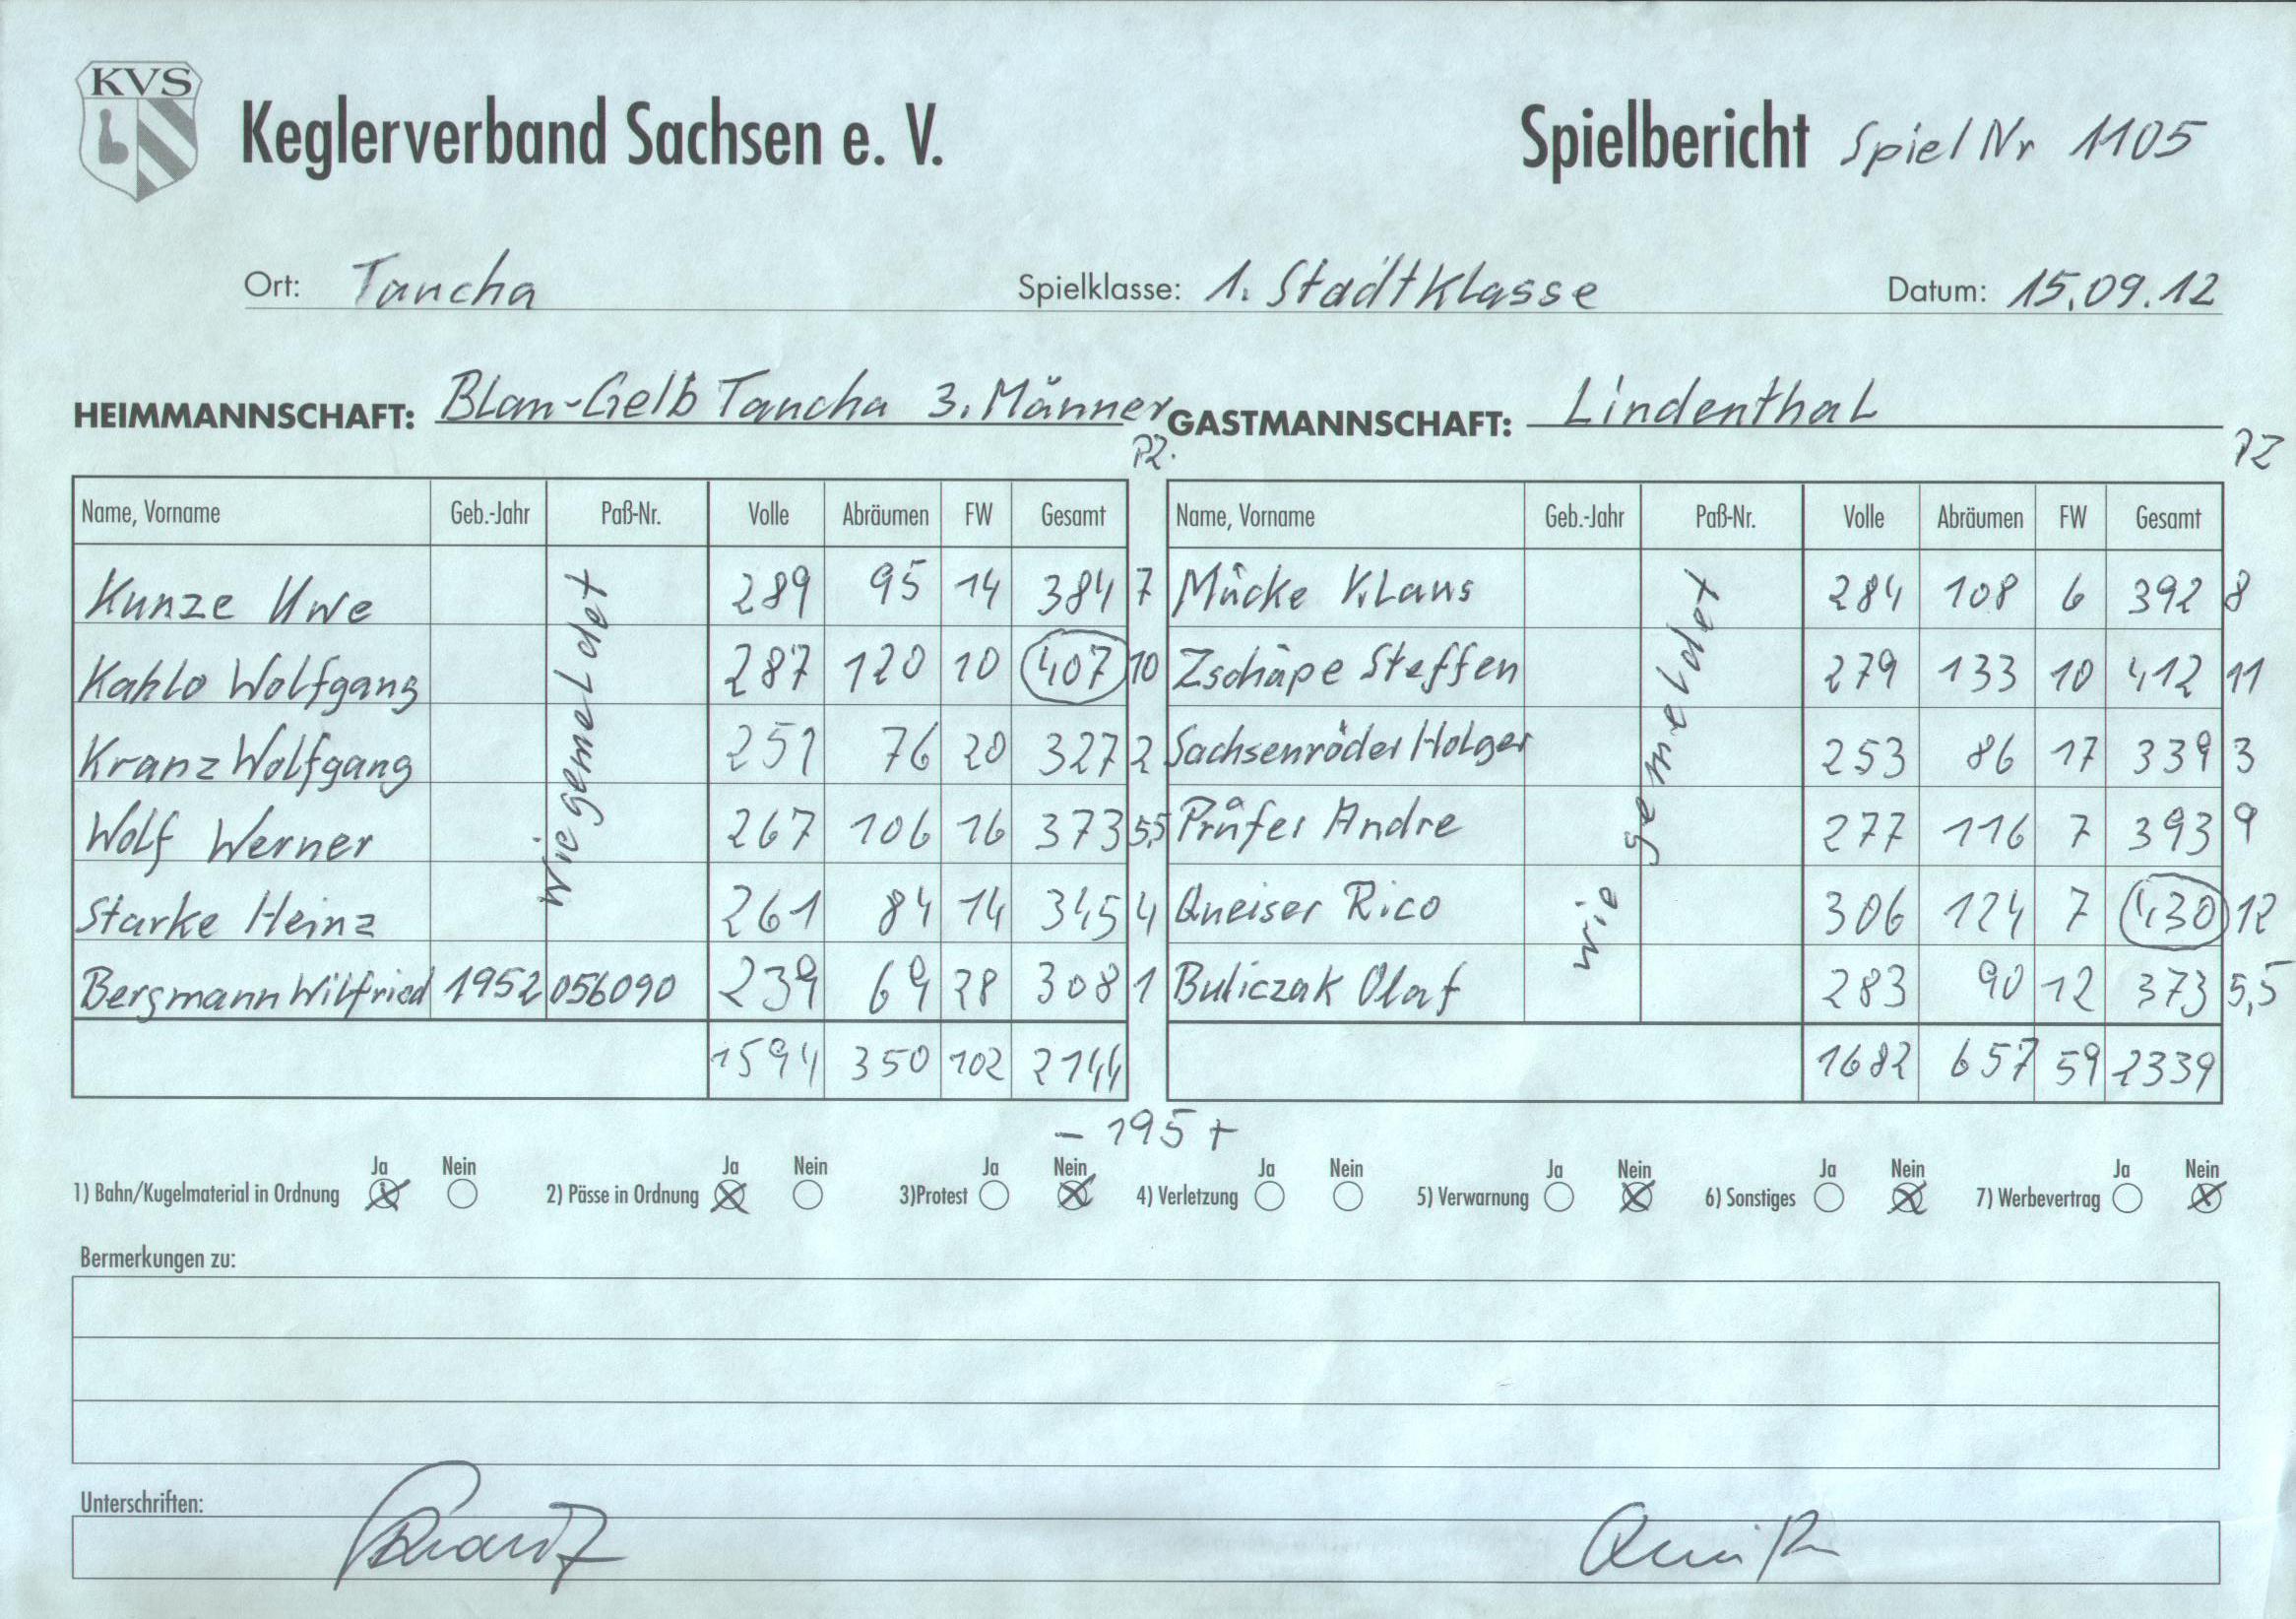 KVS
Keglerverband Sachsen e. V.
Spielbericht Spiel Nr 1105
Ort: Taucha Spielklasse: 1. Stadtklasse Datum: 15.09.12
HEIMMANNSCHAFT: Blau-Gelb Taucha 3. Männer GASTMANNSCHAFT: Lindenthal
PZ. PZ
Name, Vorname Geb.-Jahr Paß-Nr. Volle Abräumen FW Gesamt Name, Vorname Geb.-Jahr Paß-Nr. Volle Abräumen FW Gesamt
Kunze Uwe 289 95 14 384 7 Mücke Klaus 284 108 6 392 8
Kahlo Wolfgang 287 120 10 407 10 Zschäpe Steffen 279 133 10 412 11
Kranz Wolfgang 251 76 20 327 2 Sachsenröder Holger 253 86 17 339 3
Wolf Werner 267 106 16 373 5,5 Prüfer Andre 277 116 7 393 9
Starke Heinz 261 84 14 345 4 Queiser Rico 306 124 7 430 12
Bergmann Wilfried 1952 056090 239 69 28 308 1 Buliczak Olaf 283 90 12 373 5,5
wie gemeldet
wie gemeldet
1594 350 102 2144 1682 657 59 2339
- 195 +
Ja Nein Ja Nein Ja Nein Ja Nein Ja Nein Ja Nein Ja Nein
1) Bahn/Kugelmaterial in Ordnung 2) Pässe in Ordnung 3)Protest 4) Verletzung 5) Verwarnung 6) Sonstiges 7) Werbevertrag
Bermerkungen zu:
Unterschriften: